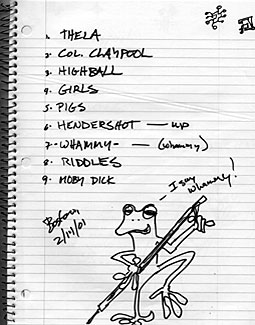 1. THELA
2. COL. CLAYPOOL
3. HIGHBALL
4. GIRLS
5. PIGS
6. HENDERSHOT — UP
7. -WHAMMY- — (whammy)
8. RIDDLES
9. MOBY DICK
- I say whammy!
Boston
2/17/01